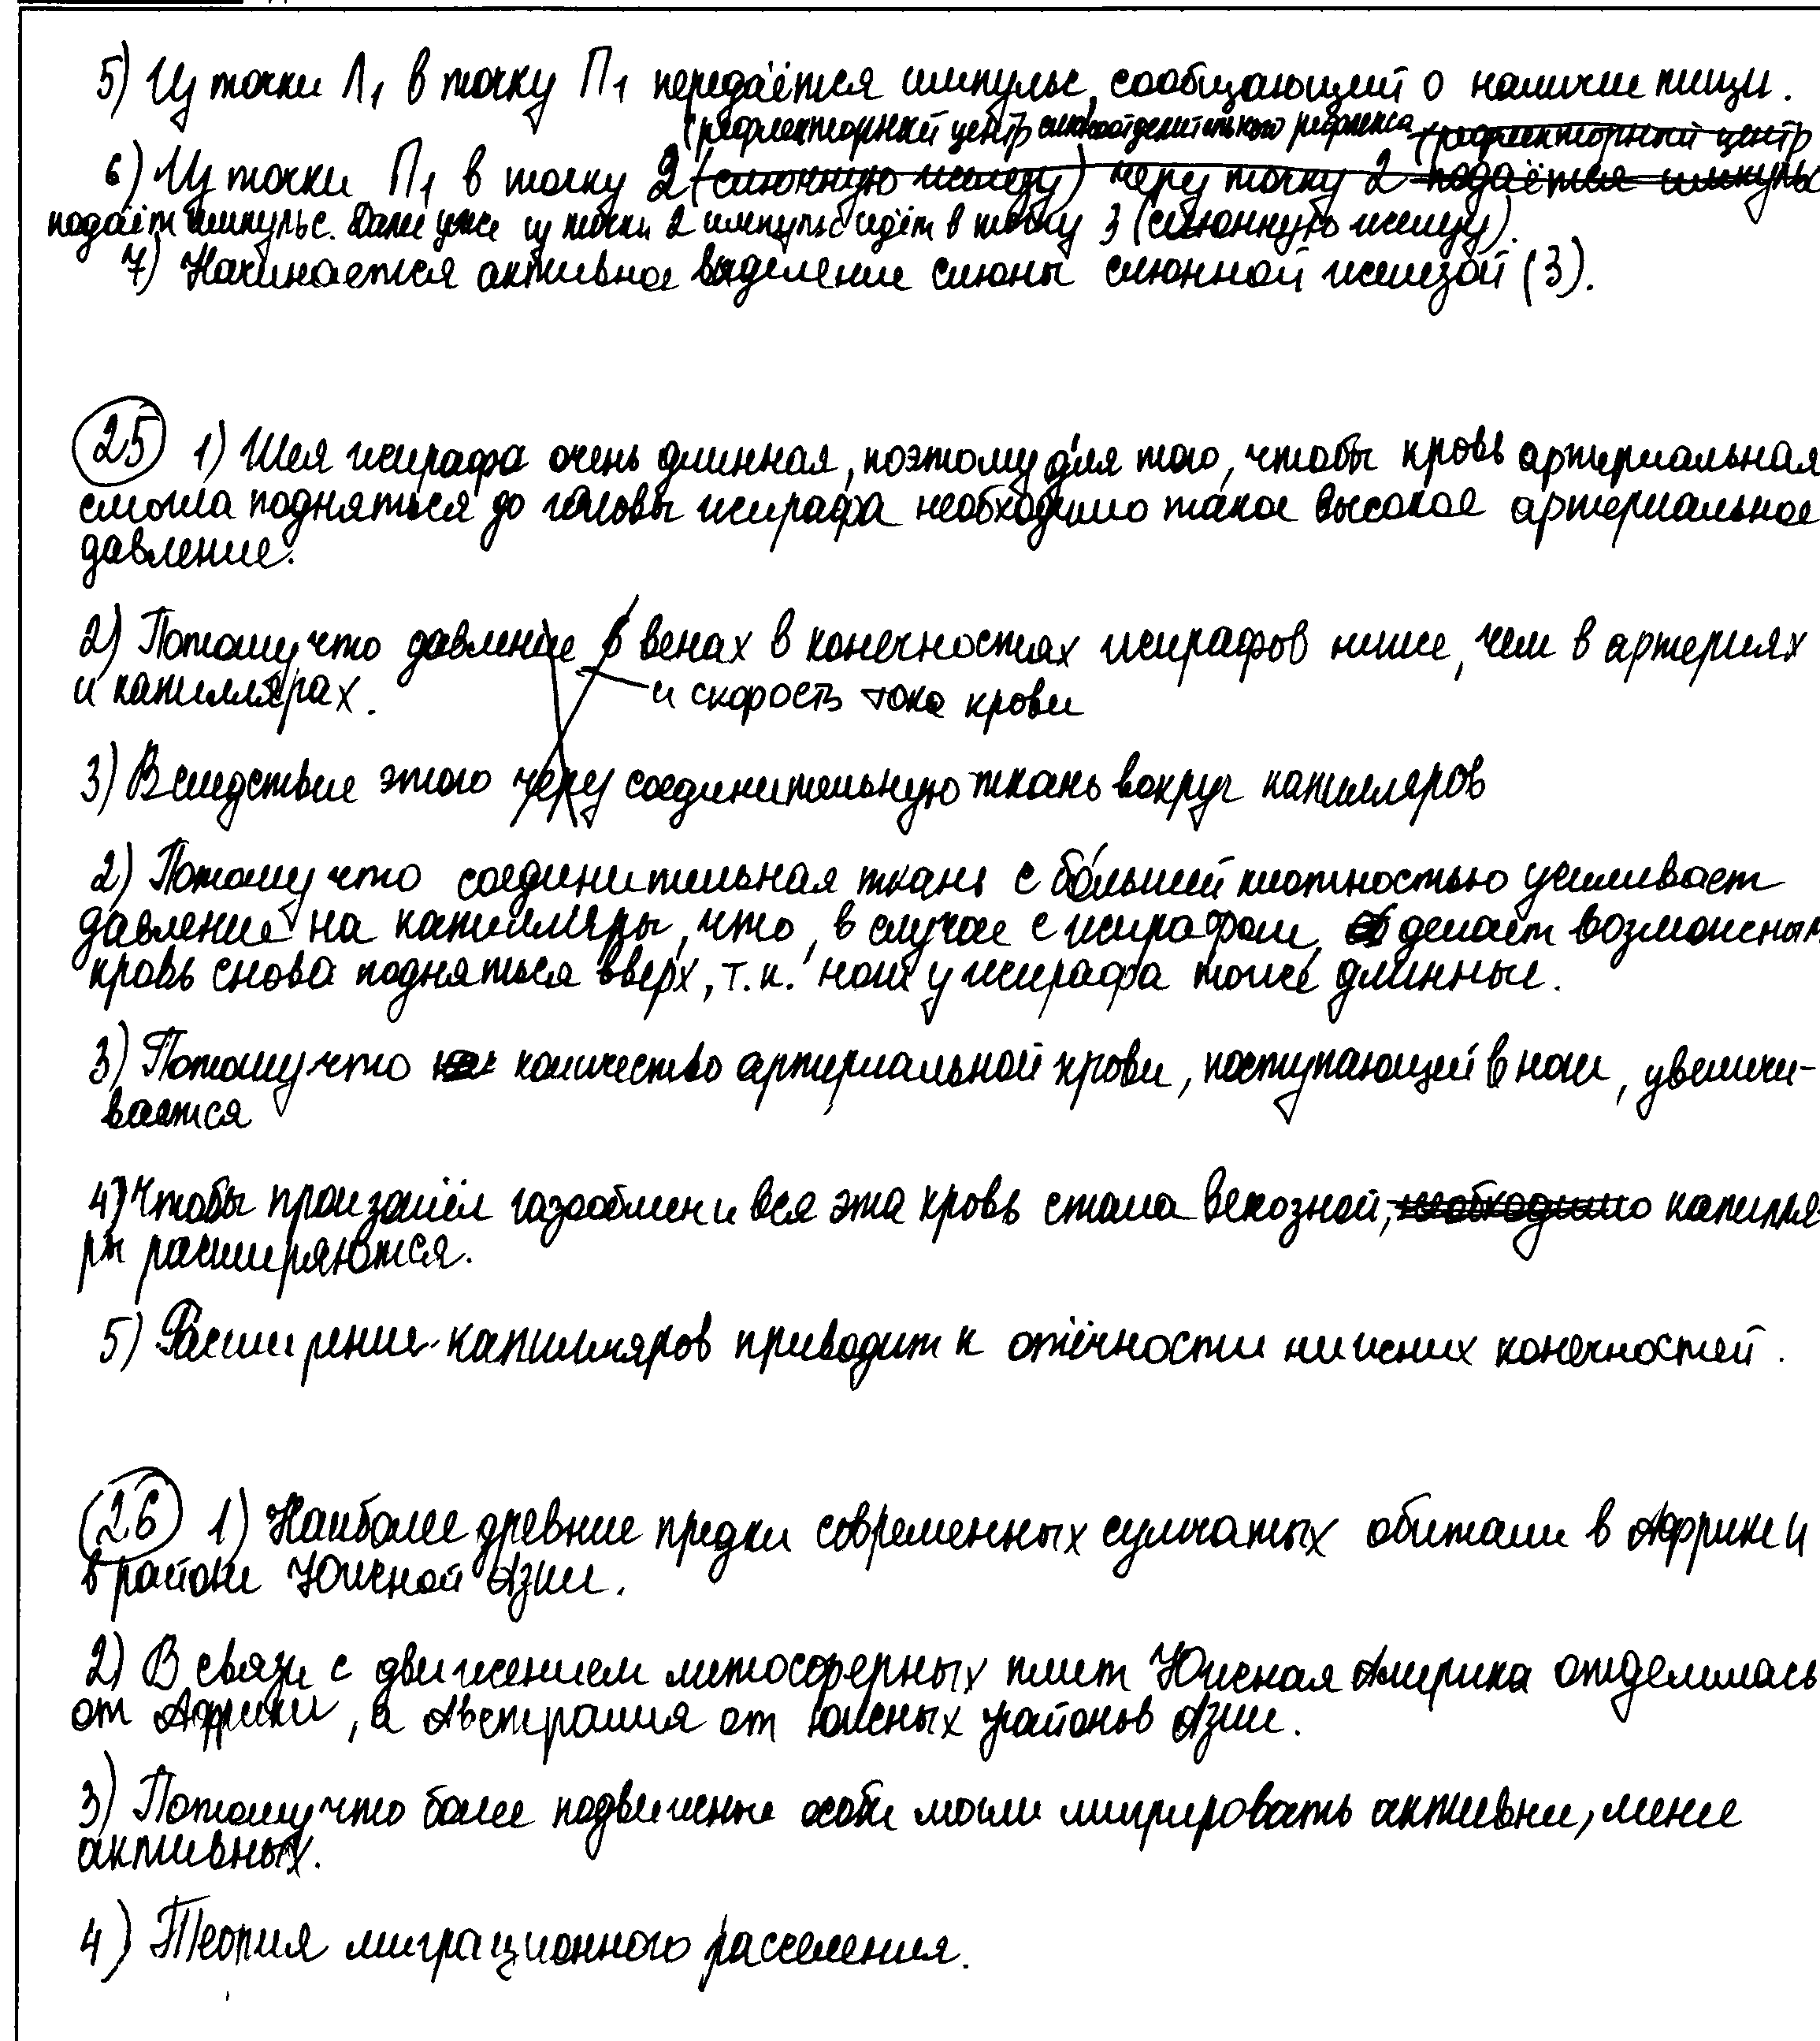 5) Из точки Л₁ в точку П₁ передаётся импульс, сообщающий о наличие пищи.
(рефлекторный центр слюноотделительного рефлекса (рефлекторный центр
6) Из точки П₁ в точку 2 (слюнную железу) через точку 2 подаётся импульс
подаёт импульс. Далее уже из точки 2 импульс идёт в точку 3 (слюнную железу).
7) Начинается активное выделение слюны слюнной железой (3).
25 1) Шея жирафа очень длинная, поэтому для того, чтобы кровь артериальная
смогла подняться до головы жирафа необходимо такое высокое артериальное
давление.
2) Потому что давление в венах в конечностях жирафов ниже, чем в артериях
и капиллярах.
и скорость тока крови
3) Вследствие этого через соединительную ткань вокруг капилляров
2) Потому что соединительная ткань с бо́льшей плотностью усиливает
давление на капилляры, что, в случае с жирафом, делает возможным
кровь снова подняться вверх, т.к. ноги у жирафа тоже длинные.
3) Потому что количество артериальной крови, поступающей в ноги, увеличи-
вается
4) Чтобы произошёл газообмен и вся эта кровь стала венозной, необходимо капилля-
ры расширяются.
5) Расширение капилляров приводит к отёчности нижних конечностей.
26 1) Наиболее древние предки современных сумчатых обитали в Африке и
в районе Южной Азии.
2) В связи с движением литосферных плит Южная Америка отделилась
от Африки, а Австралия от южных районов Азии.
3) Потому что более подвижные особи могли мигрировать активнее, менее
активных.
4) Теория миграционного расселения.